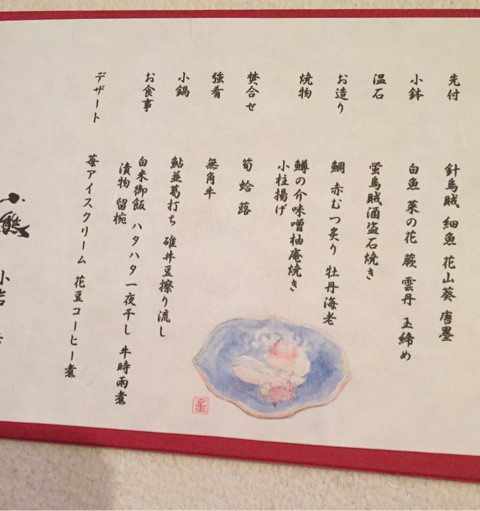 先付 針烏賊 細魚 花山葵 唐墨
小鉢 白魚 菜の花 蕨 雲丹 玉締め
温石 蛍烏賊酒盗石焼き
お造り 鯛 赤むつ炙り 牡丹海老
焼物 鱒の介味噌柚庵焼き
小柱揚げ
焚合せ 筍 蛤 蕗
強肴 無角牛
小鍋 鮎並葛打ち 碓井豆擦り流し
お食事 白米御飯 ハタハタ一夜干し 牛時雨煮
漬物 留椀
デザート 苺アイスクリーム 花豆コーヒー煮
小熊